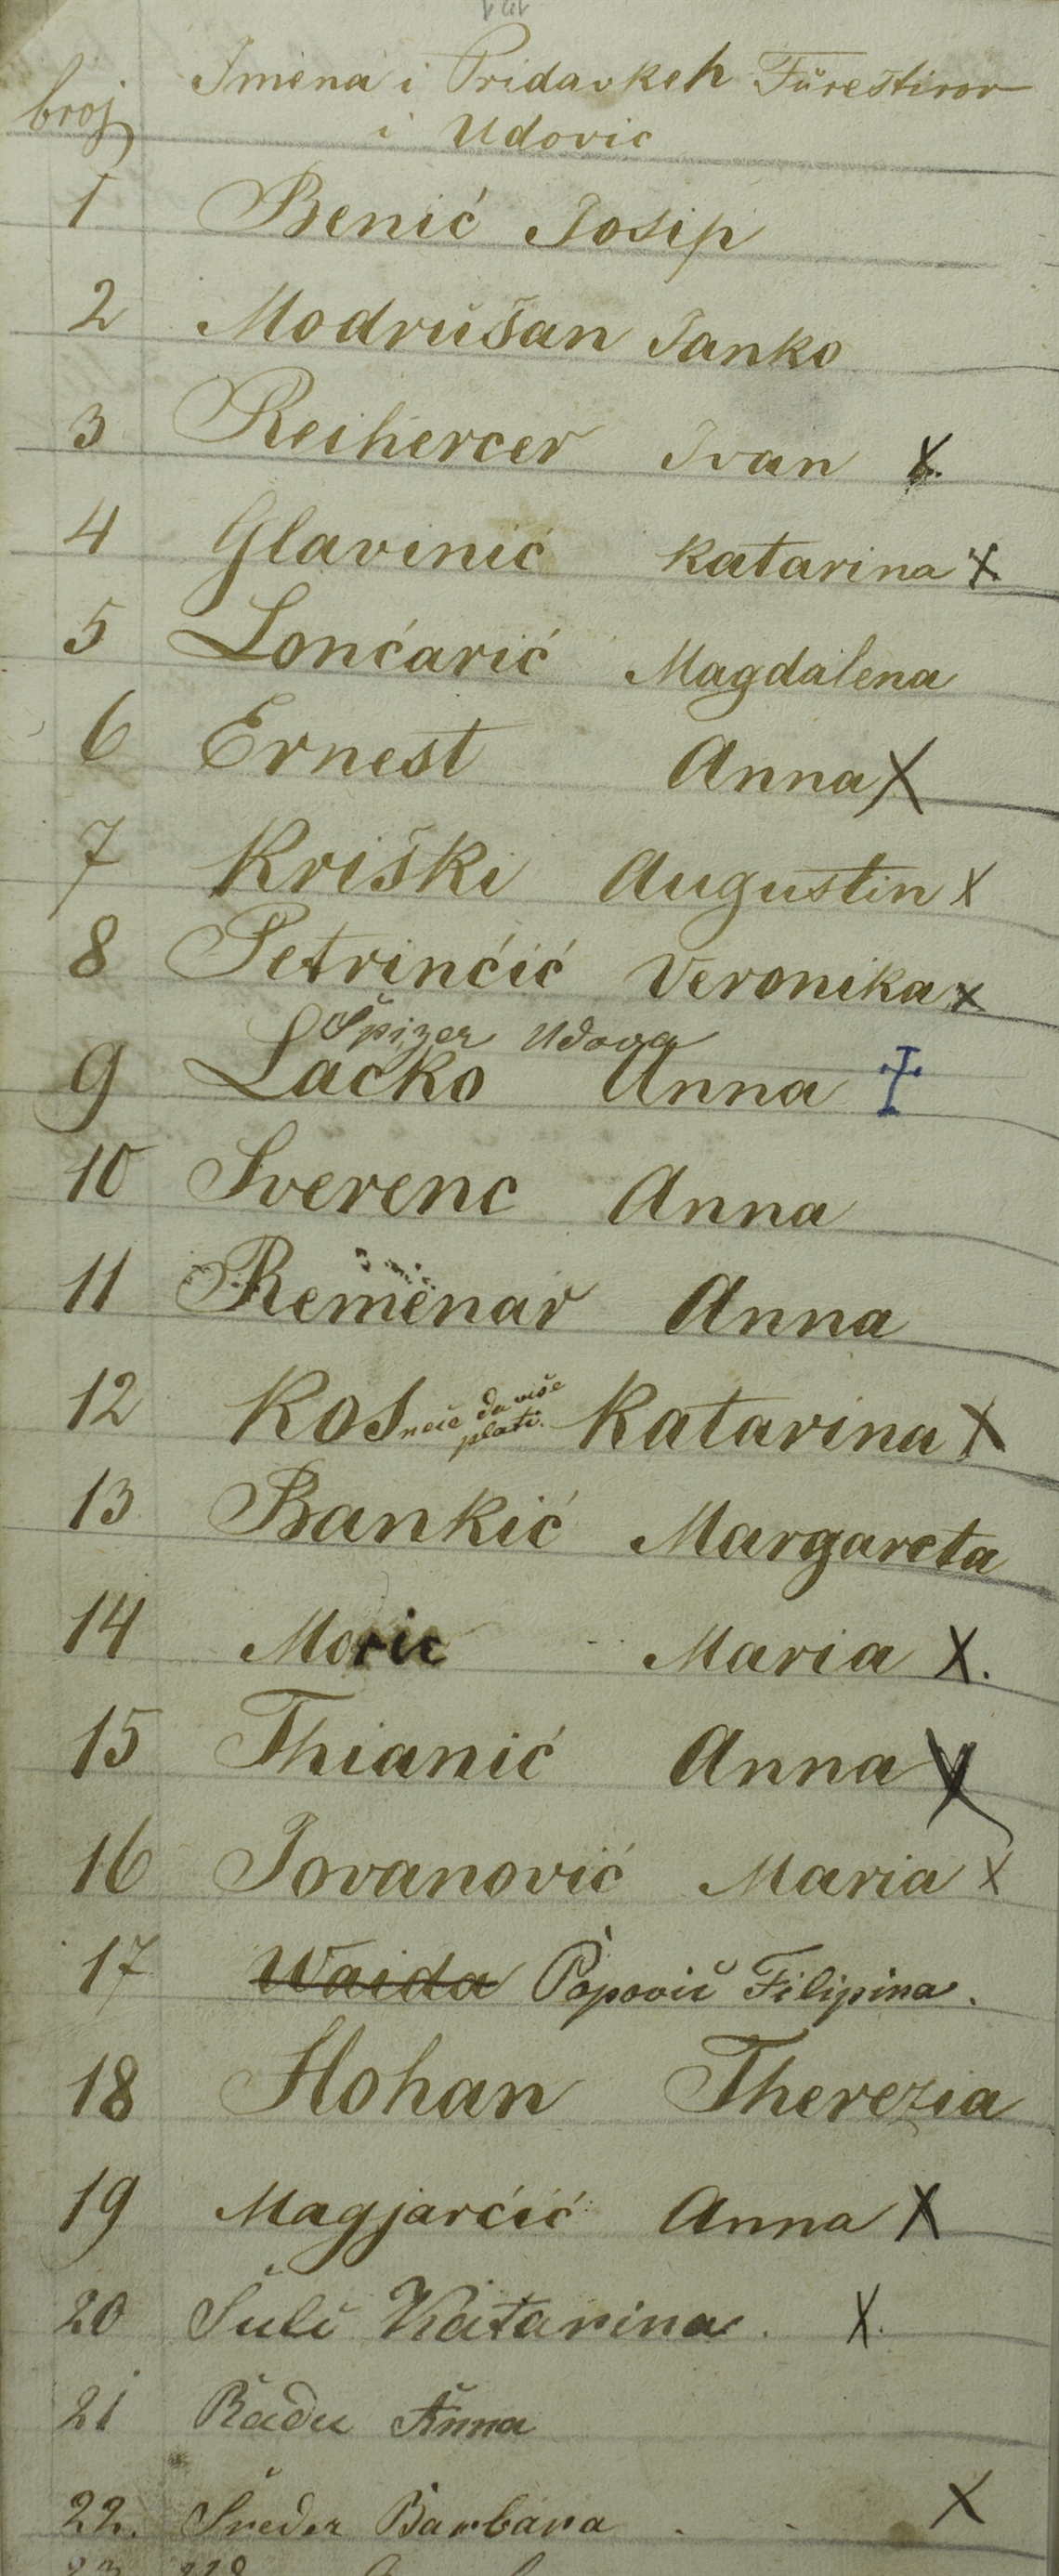 Imena i Pridavkeh Fürestirov
broj
i Udovic
1 Benić Josip
2 Modrušan Janko
3 Reihercer Ivan X.
4 Glavinić Katarina X
5 Lonćarić Magdalena
6 Ernest Anna X
7 Kriški Augustin X
8 Petrinćić Veronika X
Špizer Udova
9 Lacko Anna †
10 Sverenc Anna
11 Remenar Anna
12 Kos neće da više plati. Katarina X
13 Bankić Margareta
14 Moric Maria X.
15 Thianić Anna X
16 Jovanović Maria X
17 Waida Popović Filipina.
18 Hohan Therezia
19 Magjarćić Anna X
20 Šulc Katarina. X.
21 Radu Anna
22. Šreder Barbara . . X